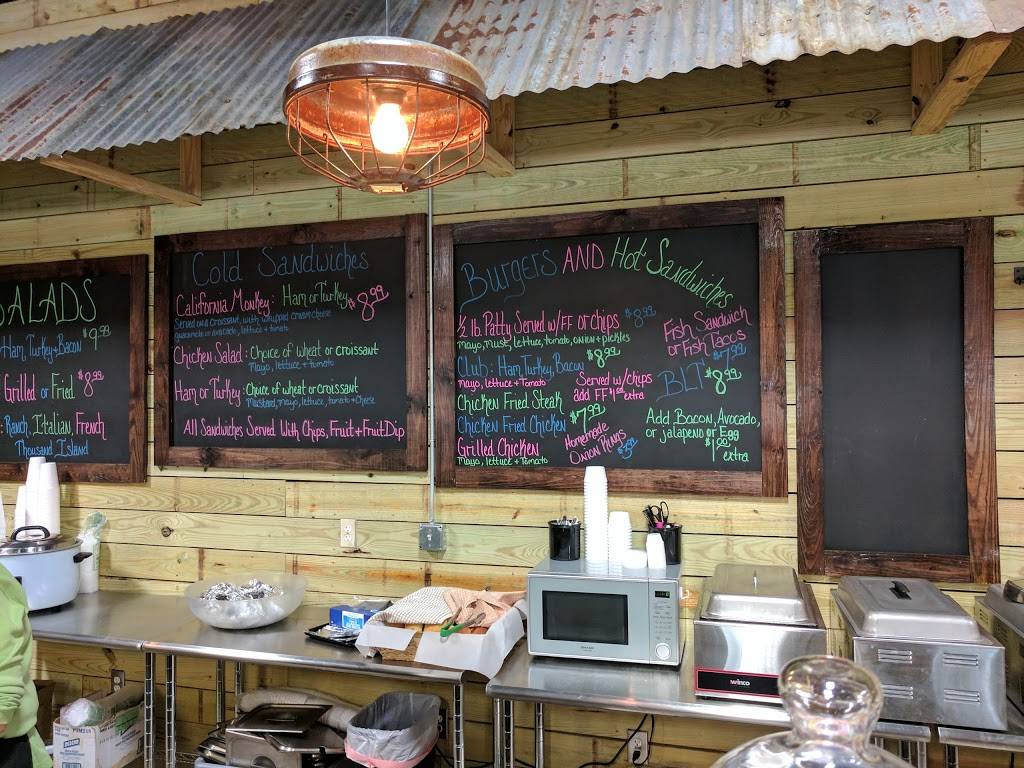 SALADS
$9.99
Ham, Turkey + Bacon
Grilled or Fried $8.99
Ranch, Italian, French
Thousand Island
Cold Sandwiches
California Monkey: Ham or Turkey $8.99
Served on a croissant, with whipped cream cheese
guacamole or avocado, lettuce + tomato
Chicken Salad: Choice of wheat or croissant
Mayo, lettuce + tomato
Ham or Turkey: Choice of wheat or croissant
Mustard, mayo, lettuce, tomato + Cheese
All Sandwiches Served With Chips, Fruit + Fruit Dip
Burgers AND Hot Sandwiches
1/2 lb Patty Served w/FF or chips $8.99
mayo, must, lettuce, tomato, onion + pickles
Club: Ham, Turkey, Bacon $8.99
Mayo, lettuce + Tomato
Served w/chips
add FF $1.00 extra
Chicken Fried Steak
Chicken Fried Chicken $7.99
Grilled Chicken
Mayo, lettuce + Tomato
Homemade
Onion Rings
Fish Sandwich
or Fish Tacos
$7.99
BLT $8.99
Add Bacon, Avocado,
or jalapeno or Egg
$1.00
extra
winco